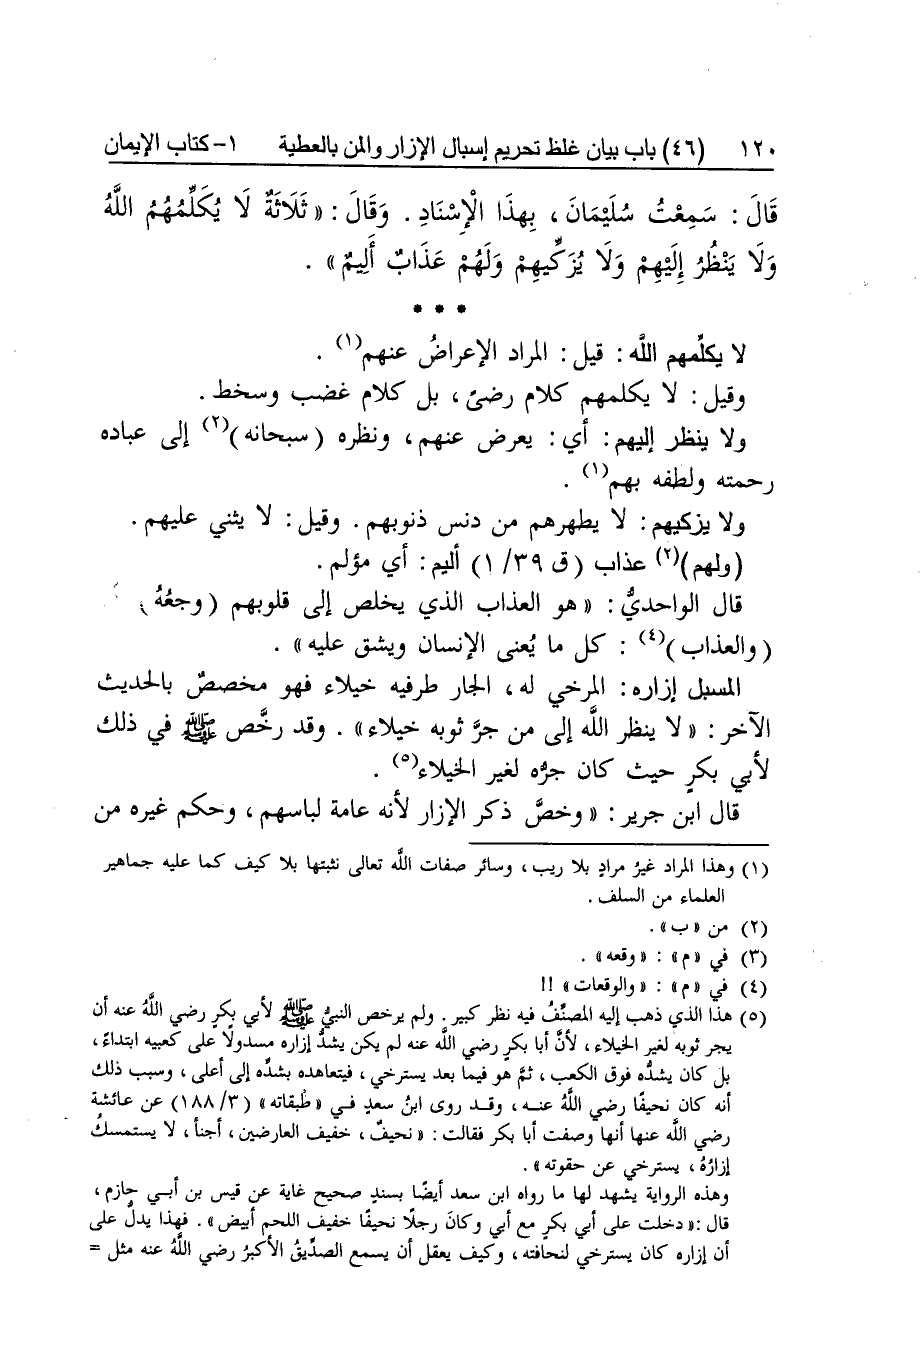 ١٢٠ (٤٦) باب بيان غلظ تحريم إسبال الإزار والمن بالعطية ١- كتاب الإيمان
قَالَ : سَمِعْتُ سُلَيْمَانَ ، بِهذَا الْإِسْنَادِ . وَقَالَ : « ثَلَاثَةٌ لَا يُكَلِّمُهُمُ اللَّهُ
وَلَا يَنْظُرُ إِلَيْهِمْ وَلَا يُزَكِّيهِمْ وَلَهُمْ عَذَابٌ أَلِيمٌ » .
* * *
لا يكلِّمهم اللَّه : قيل : المراد الإعراضُ عنهم(١) .
وقيل : لا يكلمهم كلام رضىً ، بل كلام غضب وسخط .
ولا ينظر إليهم : أي : يعرض عنهم ، ونظره ( سبحانه )(٢) إلى عباده
رحمته ولطفه بهم(١) .
ولا يزكيهم : لا يطهرهم من دنس ذنوبهم . وقيل : لا يثني عليهم .
(ولهم)(٢) عذاب (ق ٣٩/ ١) أليم : أي مؤلم .
قال الواحديُّ : « هو العذاب الذي يخلص إلى قلوبهم ( وجعُهُ )
( والعذاب )(٤) : كل ما يُعنى الإنسان ويشق عليه » .
المسبل إزاره : المرخي له ، الجار طرفيه خيلاء فهو مخصصٌ بالحديث
الآخر : « لا ينظر اللَّه إلى من جرَّ ثوبه خيلاء » . وقد رخَّص ﷺ في ذلك
لأبي بكرٍ حيث كان جرُّه لغير الخيلاء(٥) .
قال ابن جرير : « وخصَّ ذكر الإزار لأنه عامة لباسهم ، وحكم غيره من
(١) وهذا المراد غيرُ مرادٍ بلا ريب ، وسائر صفات اللَّه تعالى نثبتها بلا كيف كما عليه جماهير
العلماء من السلف .
(٢) من « ب » .
(٣) في « م » : « وقعه » .
(٤) في « م » : « والوقعات » !!
(٥) هذا الذي ذهب إليه المصنِّفُ فيه نظر كبير . ولم يرخص النبيُّ ﷺ لأبي بكرٍ رضي اللَّهُ عنه أن
يجر ثوبه لغير الخيلاء ، لأنَّ أبا بكرٍ رضي اللَّه عنه لم يكن يشدُّ إزاره مسدولًا على كعبيه ابتداءً ،
بل كان يشدُّه فوق الكعب ، ثمَّ هو فيما بعد يسترخي ، فيتعاهده بشدِّه إلى أعلى ، وسبب ذلك
أنه كان نحيفًا رضي اللَّهُ عنه ، وقد روى ابنُ سعدٍ في « طبقاته » (٣/ ١٨٨) عن عائشة
رضي اللَّه عنها أنها وصفت أبا بكر فقالت : « نحيفٌ ، خفيف العارضين ، أجنأ ، لا يستمسكُ
إزارُهُ ، يسترخي عن حقوته » .
وهذه الرواية يشهد لها ما رواه ابن سعد أيضًا بسندٍ صحيح غاية عن قيس بن أبي حازم ،
قال : « دخلت على أبي بكرٍ مع أبي وكانَ رجلًا نحيفًا خفيف اللحم أبيض » . فهذا يدلُّ على
أن إزاره كان يسترخي لنحافته ، وكيف يعقل أن يسمع الصدِّيقُ الأكبرُ رضي اللَّهُ عنه مثل =